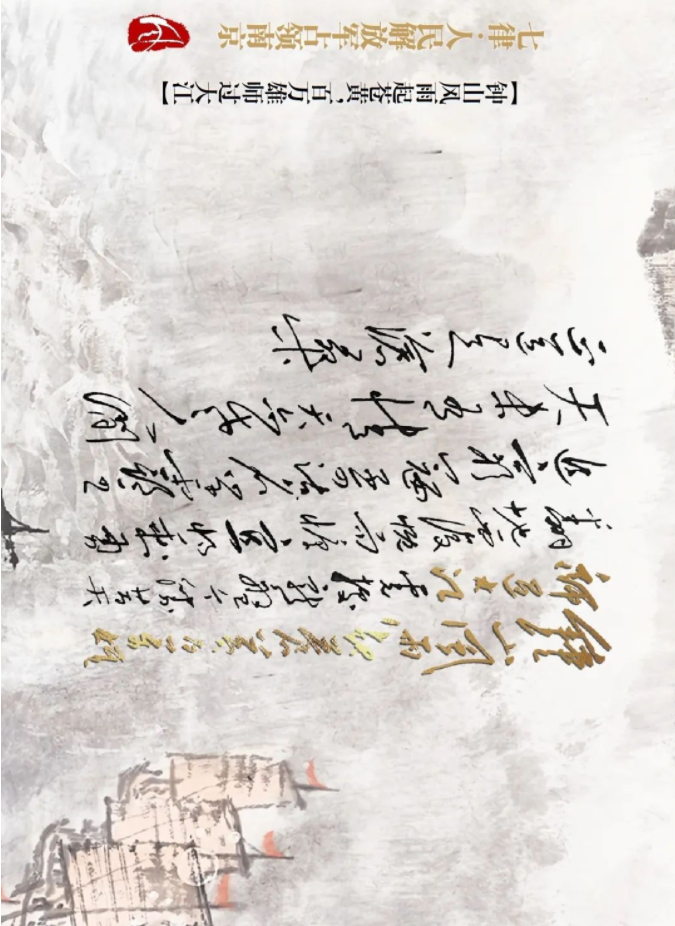 七律·人民解放军占领南京
【钟山风雨起苍黄,百万雄师过大江】
鐘山風雨起蒼黃百萬雄
師過大江虎踞龍盤今勝昔天
翻地覆慨而慷宜將剩勇
追窮寇不可沽名學霸王
天若有情天亦老人間
正道是滄桑